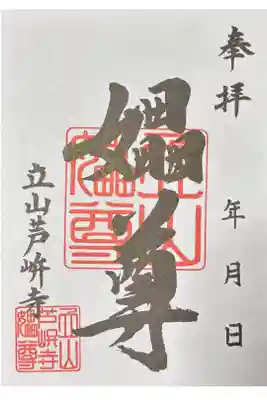 奉拝
年 月 日
媼尊
立山
媼尊
立山芦峅寺
立山
芦峅寺
媼尊